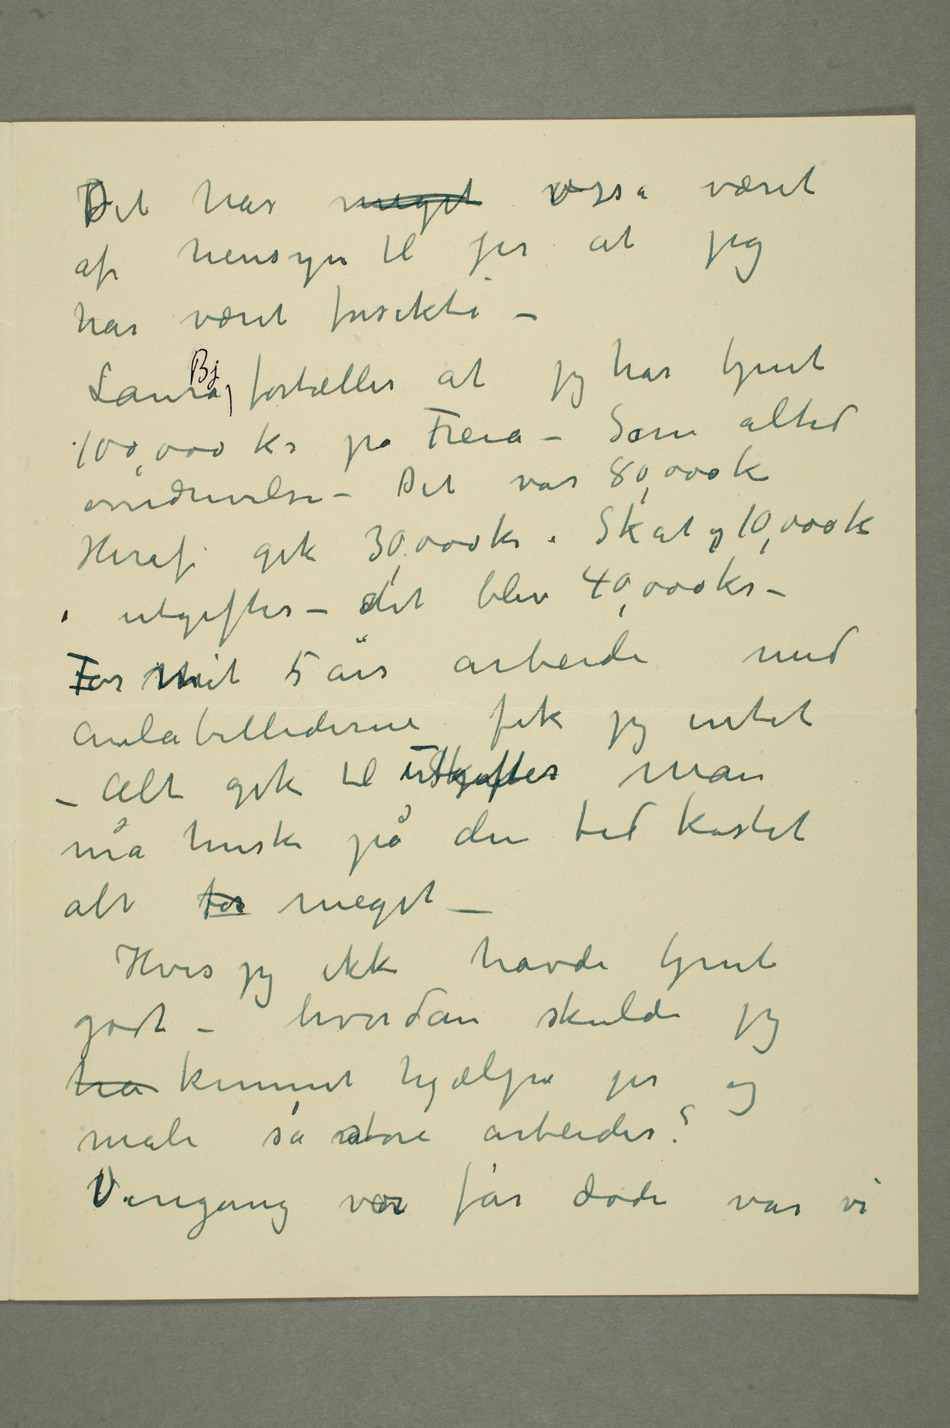 Det har meget også været
af hensyn til jer at jeg
har været forsikti –
Laura Bj fortæller at jeg har tjent
100,000 kr på Freia – Som altid
overdrivelse – Det var 80,000 k
Heraf gik 30,000 kr i Skat og 10,000 k
i utgifter – det blev 40,000 kr –
For mit 5 års arbeide med
Aulabillederne fik jeg intet
– Alt gik til utgifter Man
må huske på den tid kostet
alt for meget –
Hvis jeg ikke havde tjent
godt – hvordan skulde jeg
ha kunnet hjælpe jer og
male så store arbeider?
Dengang vor far døde var vi